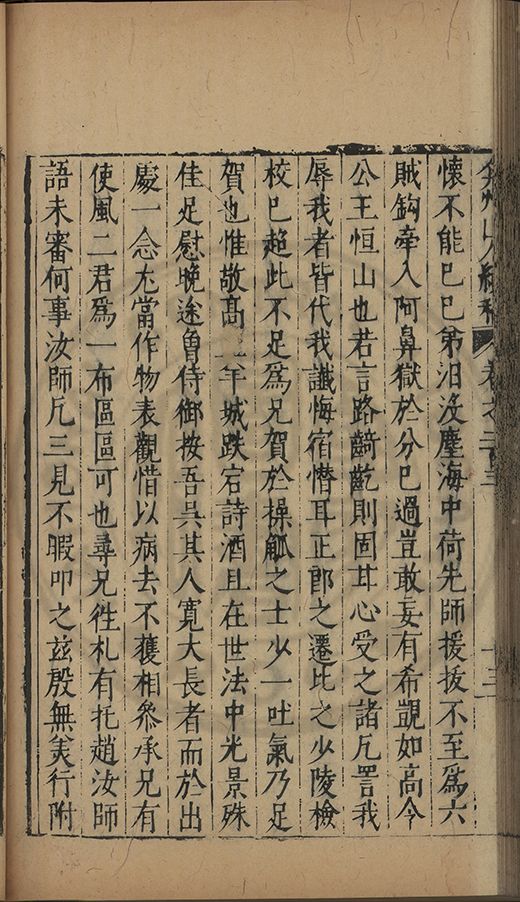 弇州山人續稿 卷之二百三 十三
懷不能已已弟汨沒塵海中荷先師援拔不至爲六
賊鈎牽入阿鼻獄於分已過豈敢妄有希覬如高令
公王恒山也若言路齮齕則固甘心受之諸凡詈我
辱我者皆代我讖悔宿愆耳正郎之遷比之少陵檢
校已超此不足爲兄賀於操觚之士少一吐氣乃足
賀也惟敬高羊城跌宕詩酒且在世法中光景殊
佳足慰晚途魯侍御按吾吳其人寬大長者而於出
處一念尤當作物表觀惜以病去不獲相叅承兄有
使風二君爲一布區區可也尋兄徃札有托趙汝師
語未審何事汝師凡三見不暇叩之茲殷無美行附